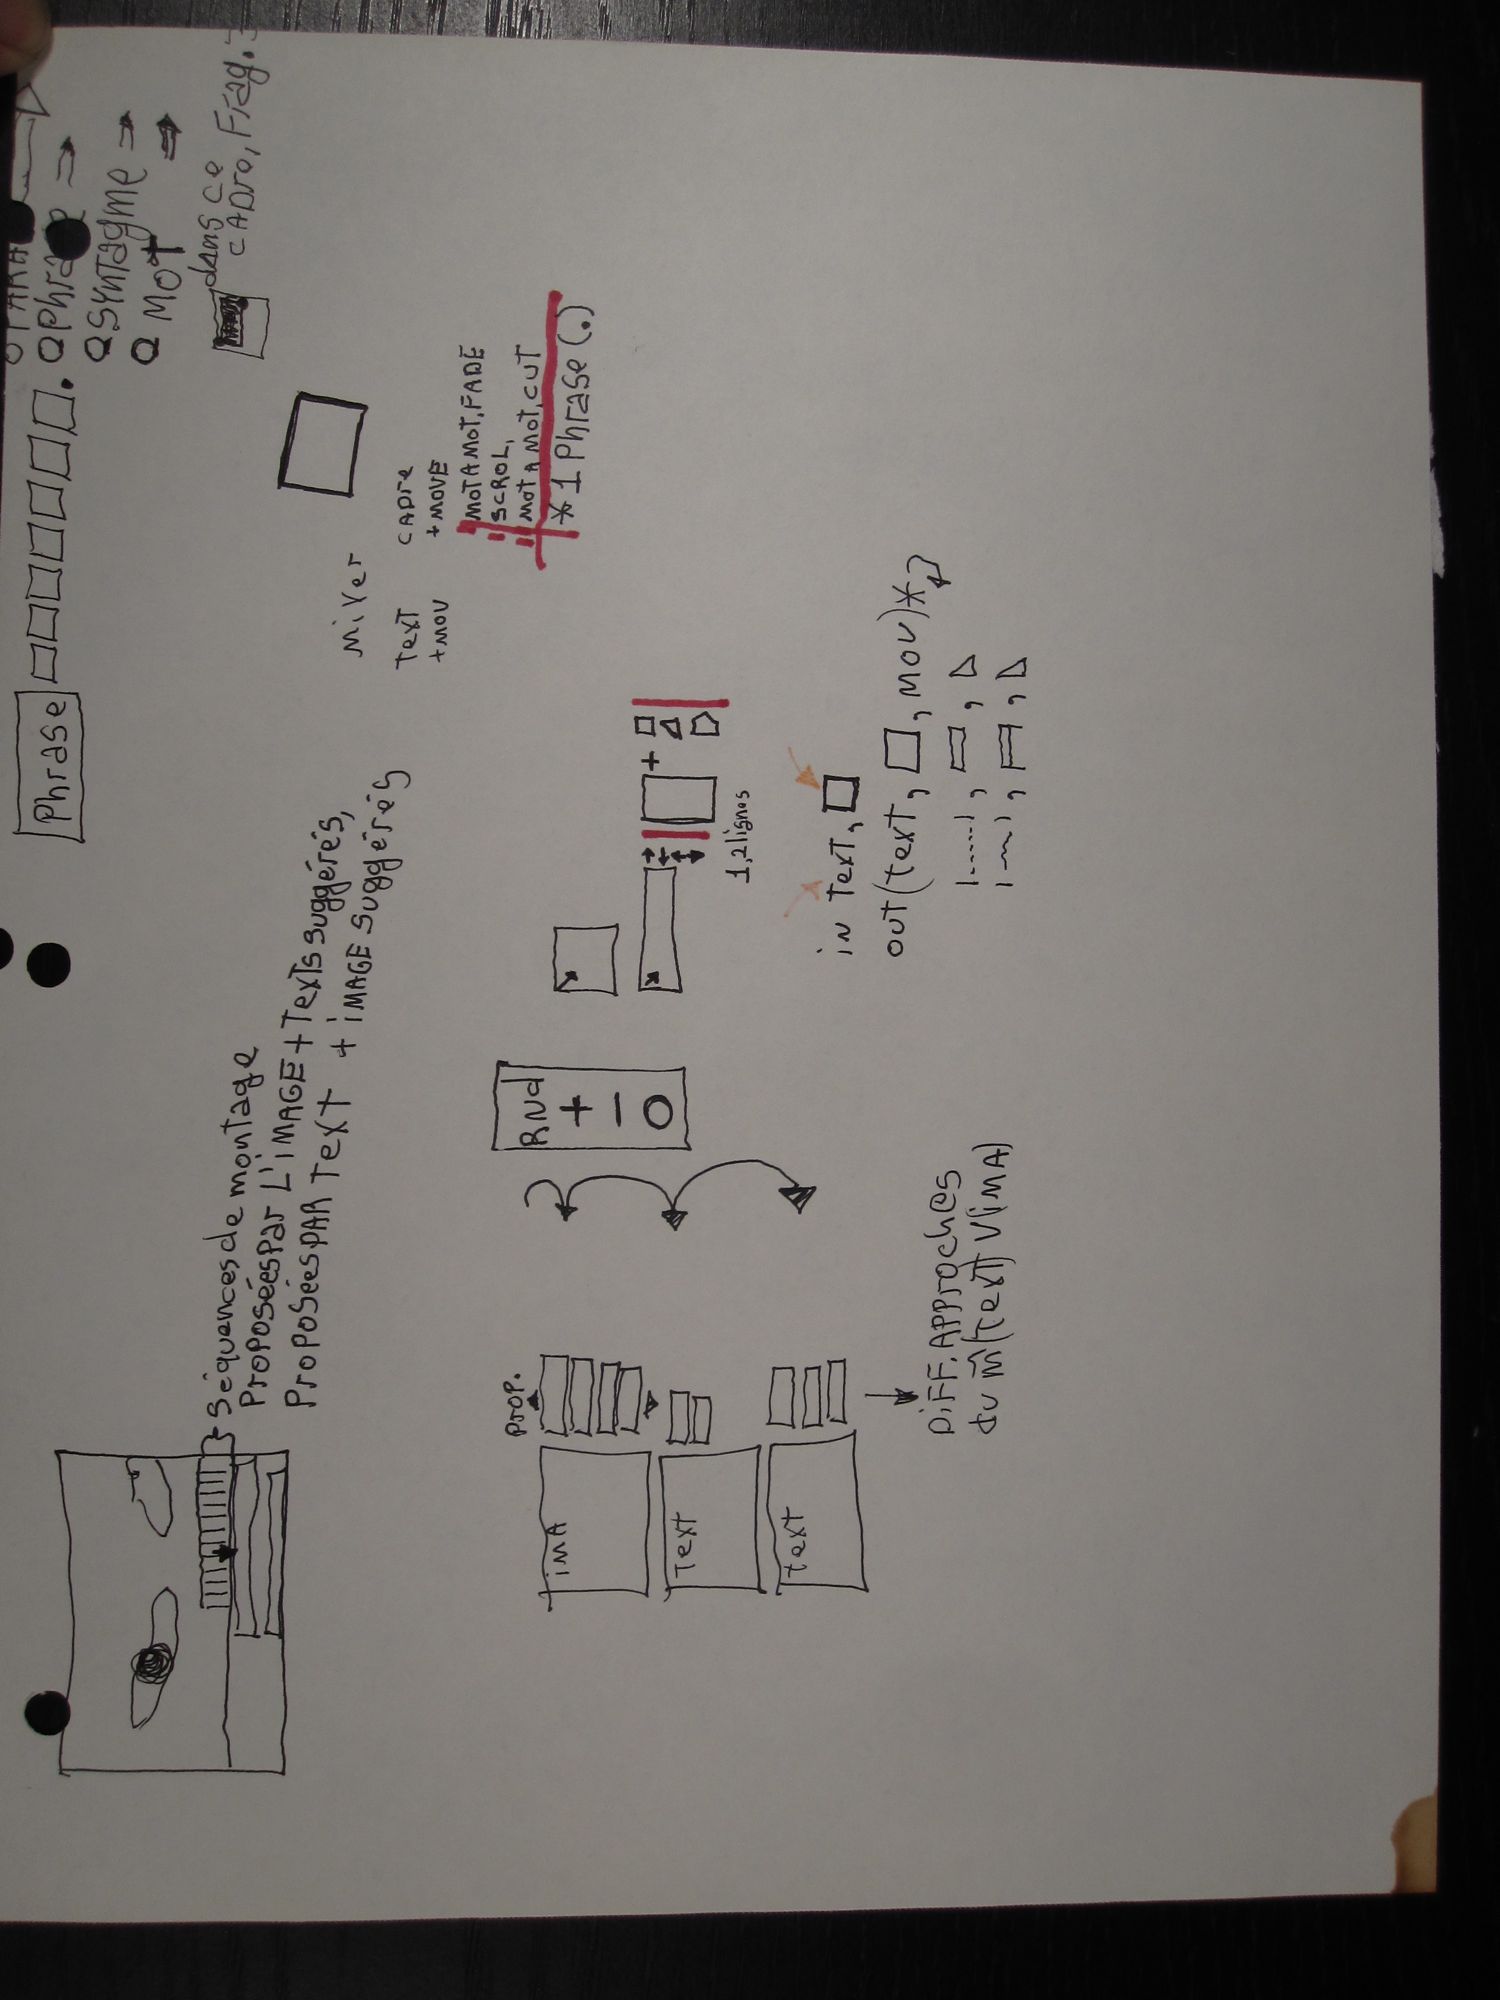 Phrase
Phrase ⇒
Syntagme ⇒
Mot ⇒
dans ce
CADre, Frag.
Séquences de montage
Proposées Par L'iMAGE + Texts suggérés,
Proposées PAR Text + iMAGE suggérés
Mixer
Text
+MOV
CADre
+MOVE
MOT A MOT, FADE
SCROL,
MOT A MOT, CUT
*1 Phrase (.)
Prop.
iMA
Text
Text
RNd
+
−
O
+
1,2 lignes
iN Text,
out(text, , mov)*
DiFF. APProches
du m̂ (Text) V (iMA)